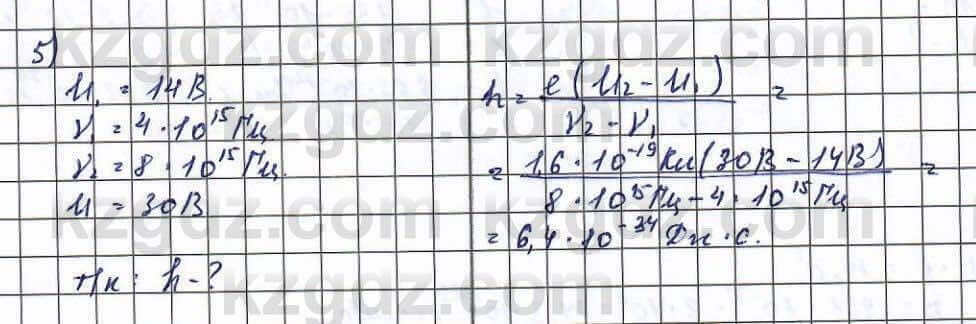 5)
U₁ = 14В.
ν₁ = 4 · 10¹⁵ Гц
ν₂ = 8 · 10¹⁵ Гц.
U = 30В
Н/к: h - ?
h = e(U₂ - U₁) / ν₂ - ν₁ =
= 1,6 · 10⁻¹⁹ Кл (30В - 14В) / 8 · 10¹⁵ Гц - 4 · 10¹⁵ Гц =
= 6,4 · 10⁻³⁴ Дж · с.
kzgdz.com
kzgdz.com
kzgdz.com
kzgdz.com
kzgdz.com
kzgdz.com